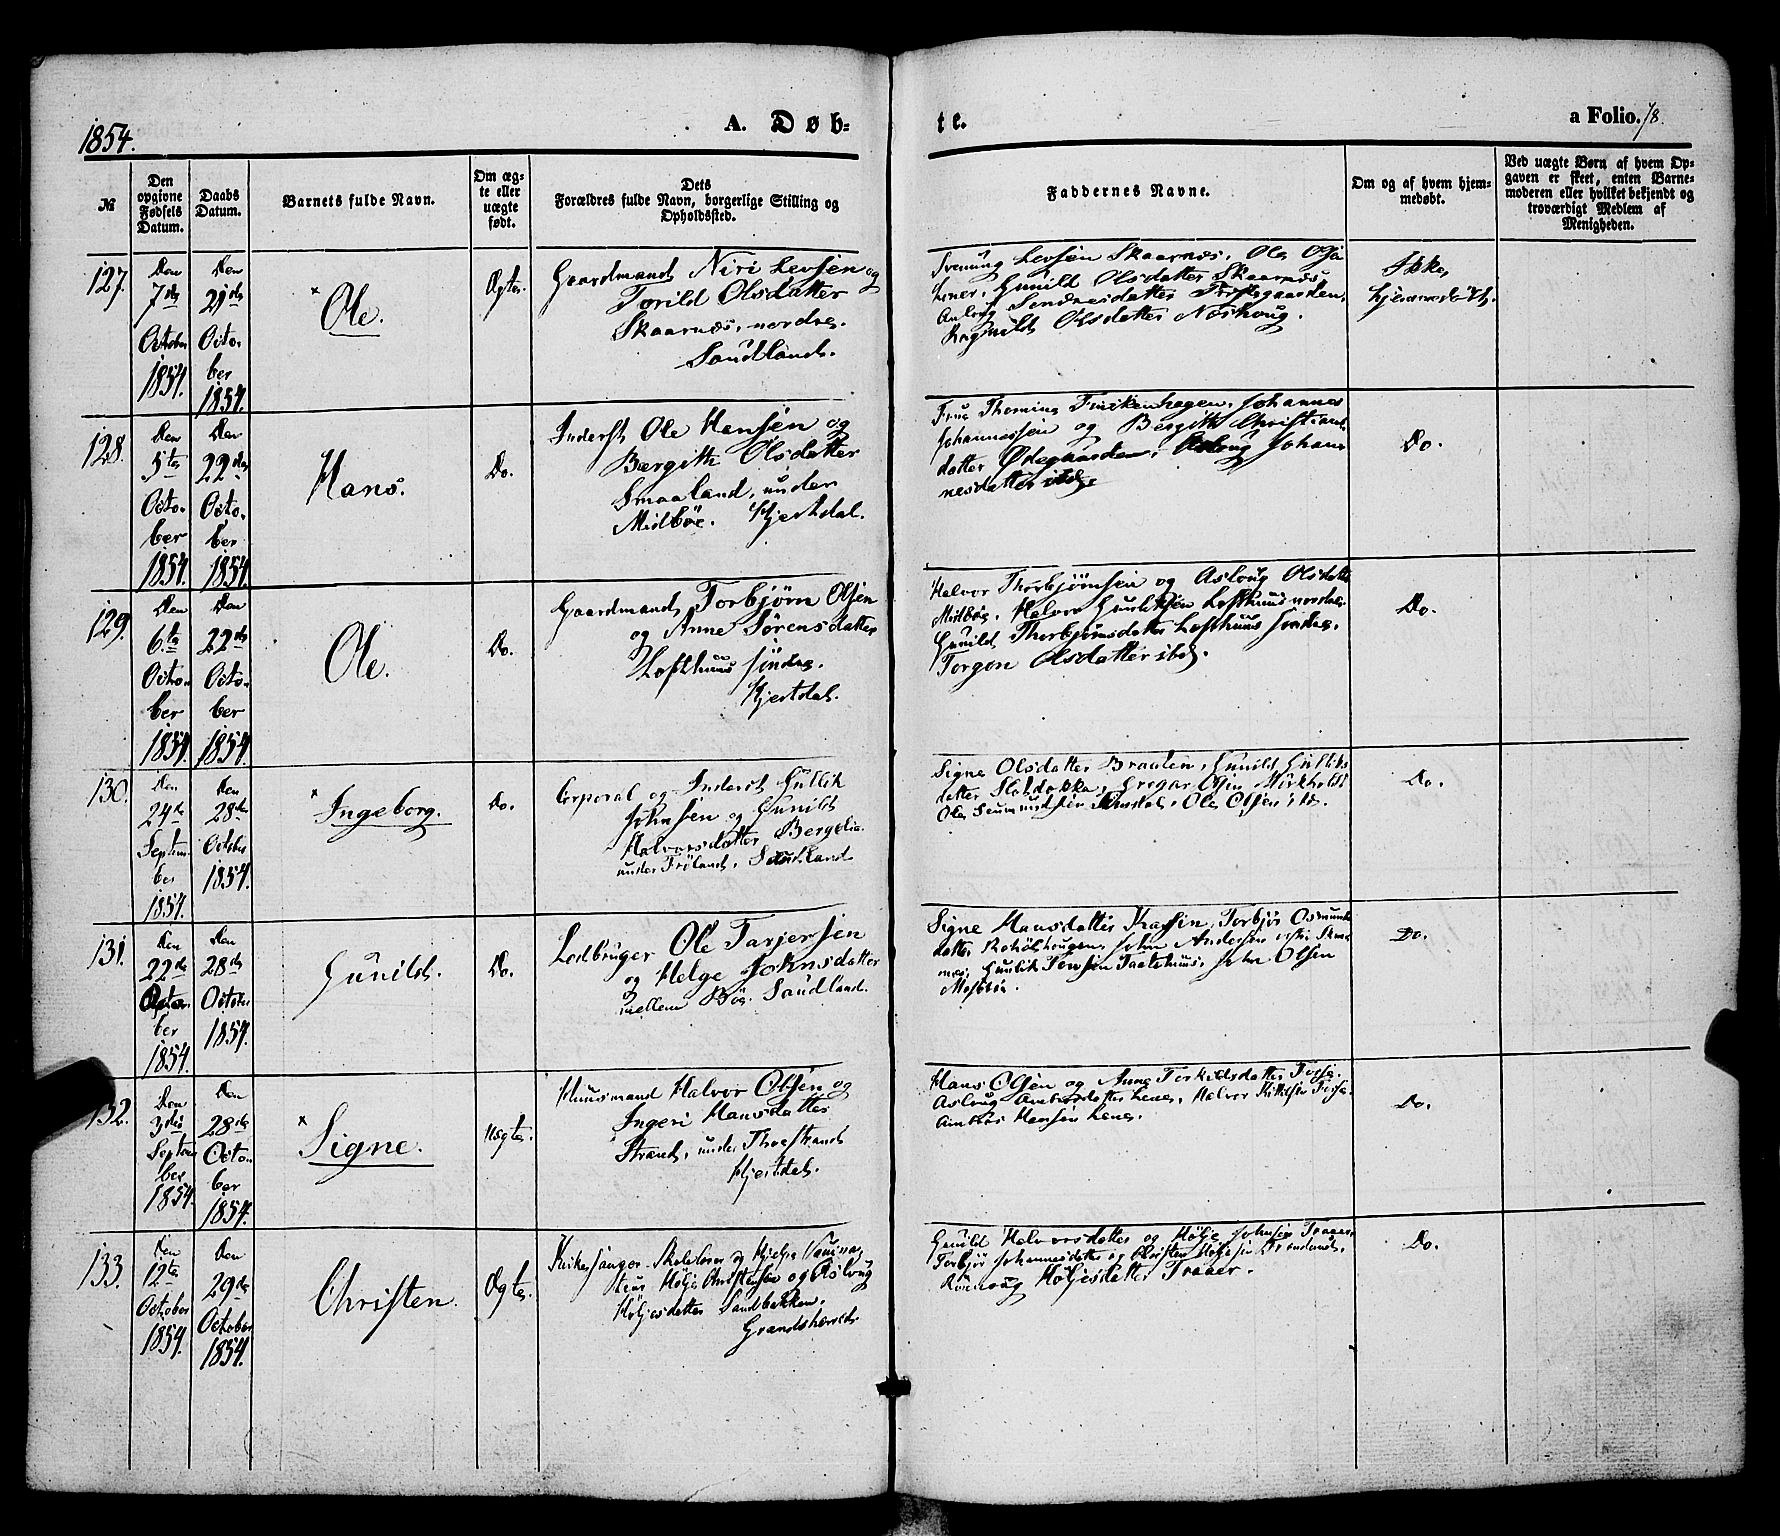 1854.
A. Døb-
te.
a Folio. 78.
№
Den opgivne Fødsels Datum.
Daabs Datum.
Barnets fulde Navn.
Om ægte eller uægte født.
Dets
Forældres fulde Navn, borgerlige Stilling og
Opholdssted.
Faddernes Navne.
Om og af hvem hjemmedøbt.
Ved uægte Børn af hvem Opgaven er skeet, enten Barnemoderen eller hvilket bekjendt og troværdigt Medlem af Menigheden.
127.
Den
7de
October
1854.
Den
21de
Octo-
ber
1854.
× Ole.
Ægte.
Gaardmand Niri Levsen og
Torild Olsdatter
Skaarnæs, nordre.
Saudland.
Svenung Levsen Skaarnæs, Ole Olsen
Gunild Olsdatter Skaarnæs,
Asloug
Ragnild Olsdatter
Ikke
hjemmedøbt.
128.
Den
5te
Octo-
ber
1854.
Den
22de
Octo-
ber
1854.
Hans.
Do.
Inderst Ole Hansen og
Bergith Olsdatter
Smaaland, under
Midbøe. Hjertdal.
Frue Thomine Finckenhagen, Johannes
Johannessen og Bergith Christians-
datter Ødegaarden, Asloug Johan-
nesdatter ibd.
Do.
129.
Den
6te
Octo-
ber
1854.
Den
22de
Octo-
ber
1854.
Ole.
Do.
Gaardmand Torbjørn Olsen
og Anne Sørensdatter
Lofthuus søndre.
Hjertdal.
Halvor Thorbjørnsen og Asloug Olsdatter
Midbøe, Halvor Gunleksen Lofthuus nordre.
Gunild Thorbjørnsdatter Lofthuus søndre.
Torgon Olsdatter ibd.
Do.
130.
Den
24de
Septem-
ber
1854.
Den
28de
October
1854.
× Ingeborg.
Do.
Corporal og Inderst Gullik
Johnsen og Gunild
Halvorsdatter Bergelie
under Frøland, Saudland
Signe Olsdatter Braaten, Gunild Gulliks-
datter Slaadakka, Gregar Olsen
Ole Olsen ibd.
Do.
131.
Den
22de
Octo-
ber
1854.
Den
28de
October
1854.
Gunild.
Do.
Lodbruger Ole Tarjersen
og Helge Johnsdatter
mellem Bøe. Saudland.
Signe Hansdatter Torbjør Osmunds-
datter John Andersen
John Olsen
Do.
132.
Den
3die
Septem-
ber
1854.
Den
28de
Octo-
ber
1854.
× Signe.
Uægte.
Huusmand Halvor Olsen og
Ingeri Hansdatter
Strand, under Thvestrand
Hjertdal.
Hans Olsen og Anne Terkildsdatter
Aslaug Halvor Kittilsen
Hansen
Do.
133.
Den
12te
October
1854.
Den
29de
October
1854.
Christen.
Ægte.
Kirkesanger, Skolelærer og
Hølje Christensen og Rønnoug
Høljesdatter Sandbakken.
Grandsherred.
Gunild Halvorsdatter og Hølje Johnsen Traaer,
Torbjør Johannesdatter og Christen Høljesen
Rønnoug Høljesdatter Traaer.
Do.